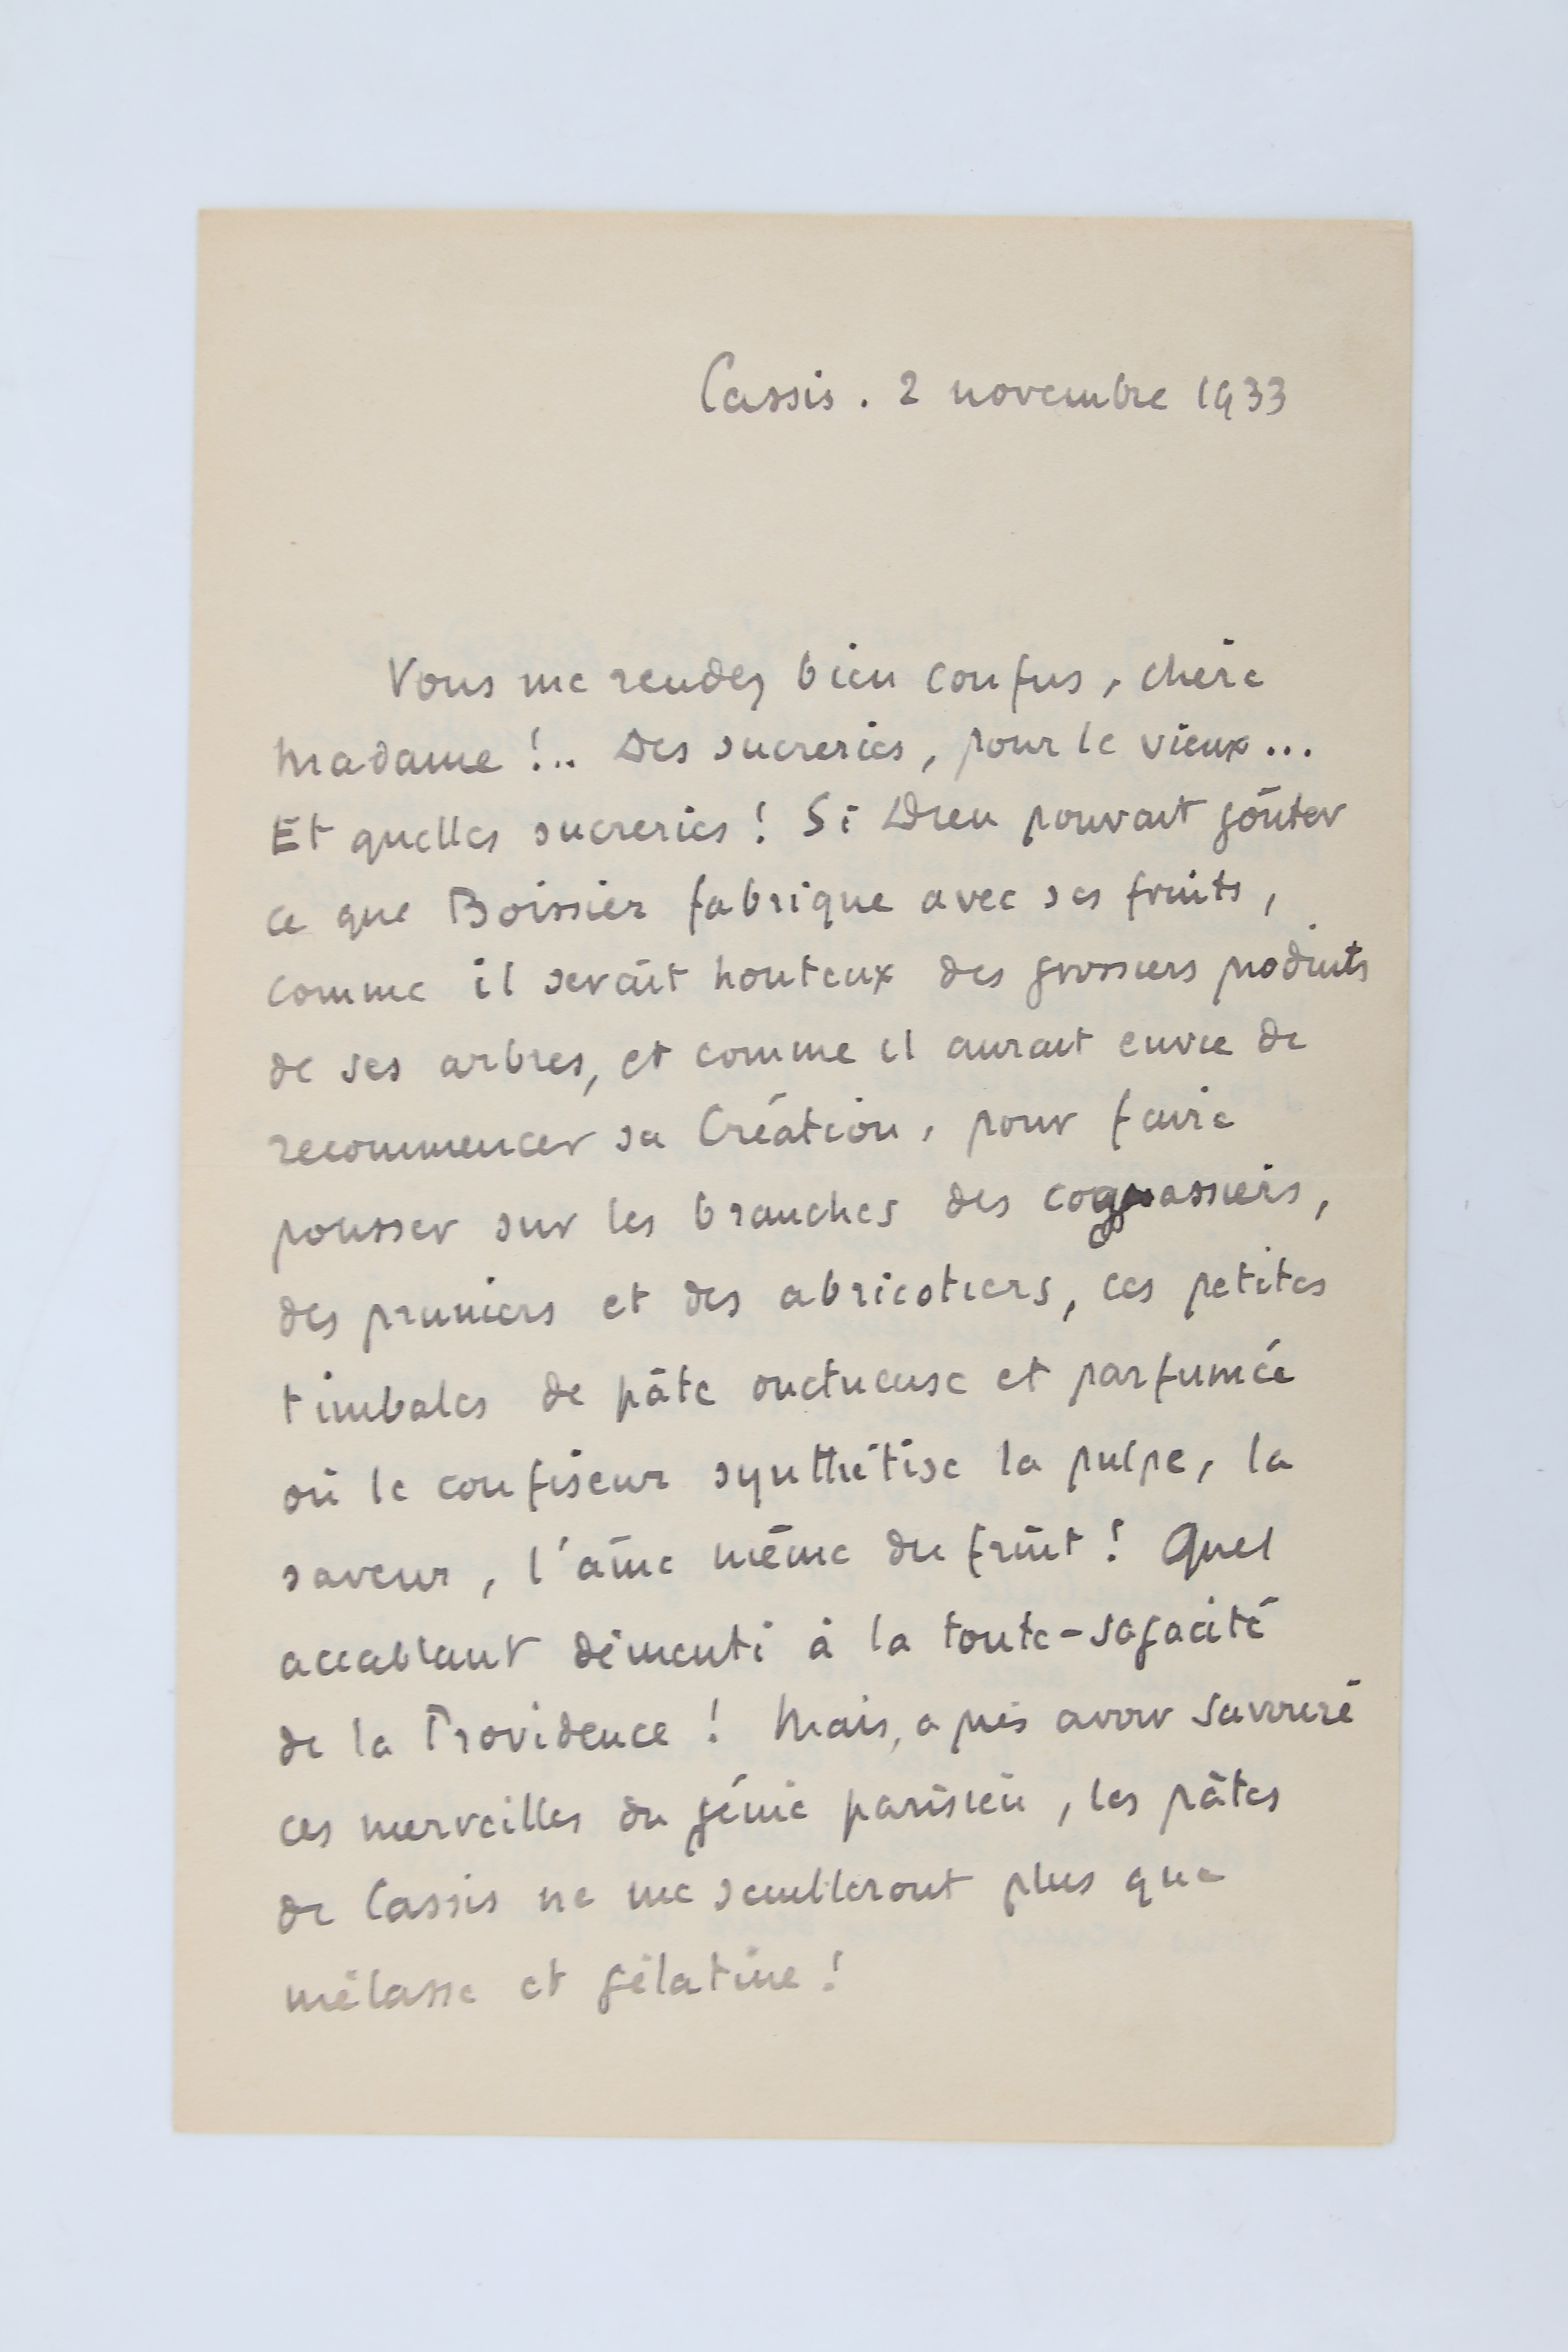 Cassis. 2 novembre 1933
Vous me rendez bien confus, chère
Madame !.. Des sucreries, pour le vieux...
Et quelles sucreries ! Si Dieu pouvait goûter
ce que Boissier fabrique avec ses fruits,
comme il serait honteux des grossiers produits
de ses arbres, et comme il aurait envie de
recommencer sa Création, pour faire
pousser sur les branches des cognassiers,
des pruniers et des abricotiers, ces petites
timbales de pâte onctueuse et parfumée
où le confiseur synthétise la pulpe, la
saveur, l'âme même du fruit ! Quel
accablant démenti à la toute-sagacité
de la Providence ! Mais, après avoir savouré
ces merveilles du génie parisien, les pâtes
de Cassis ne me sembleront plus que
mélasse et gélatine !